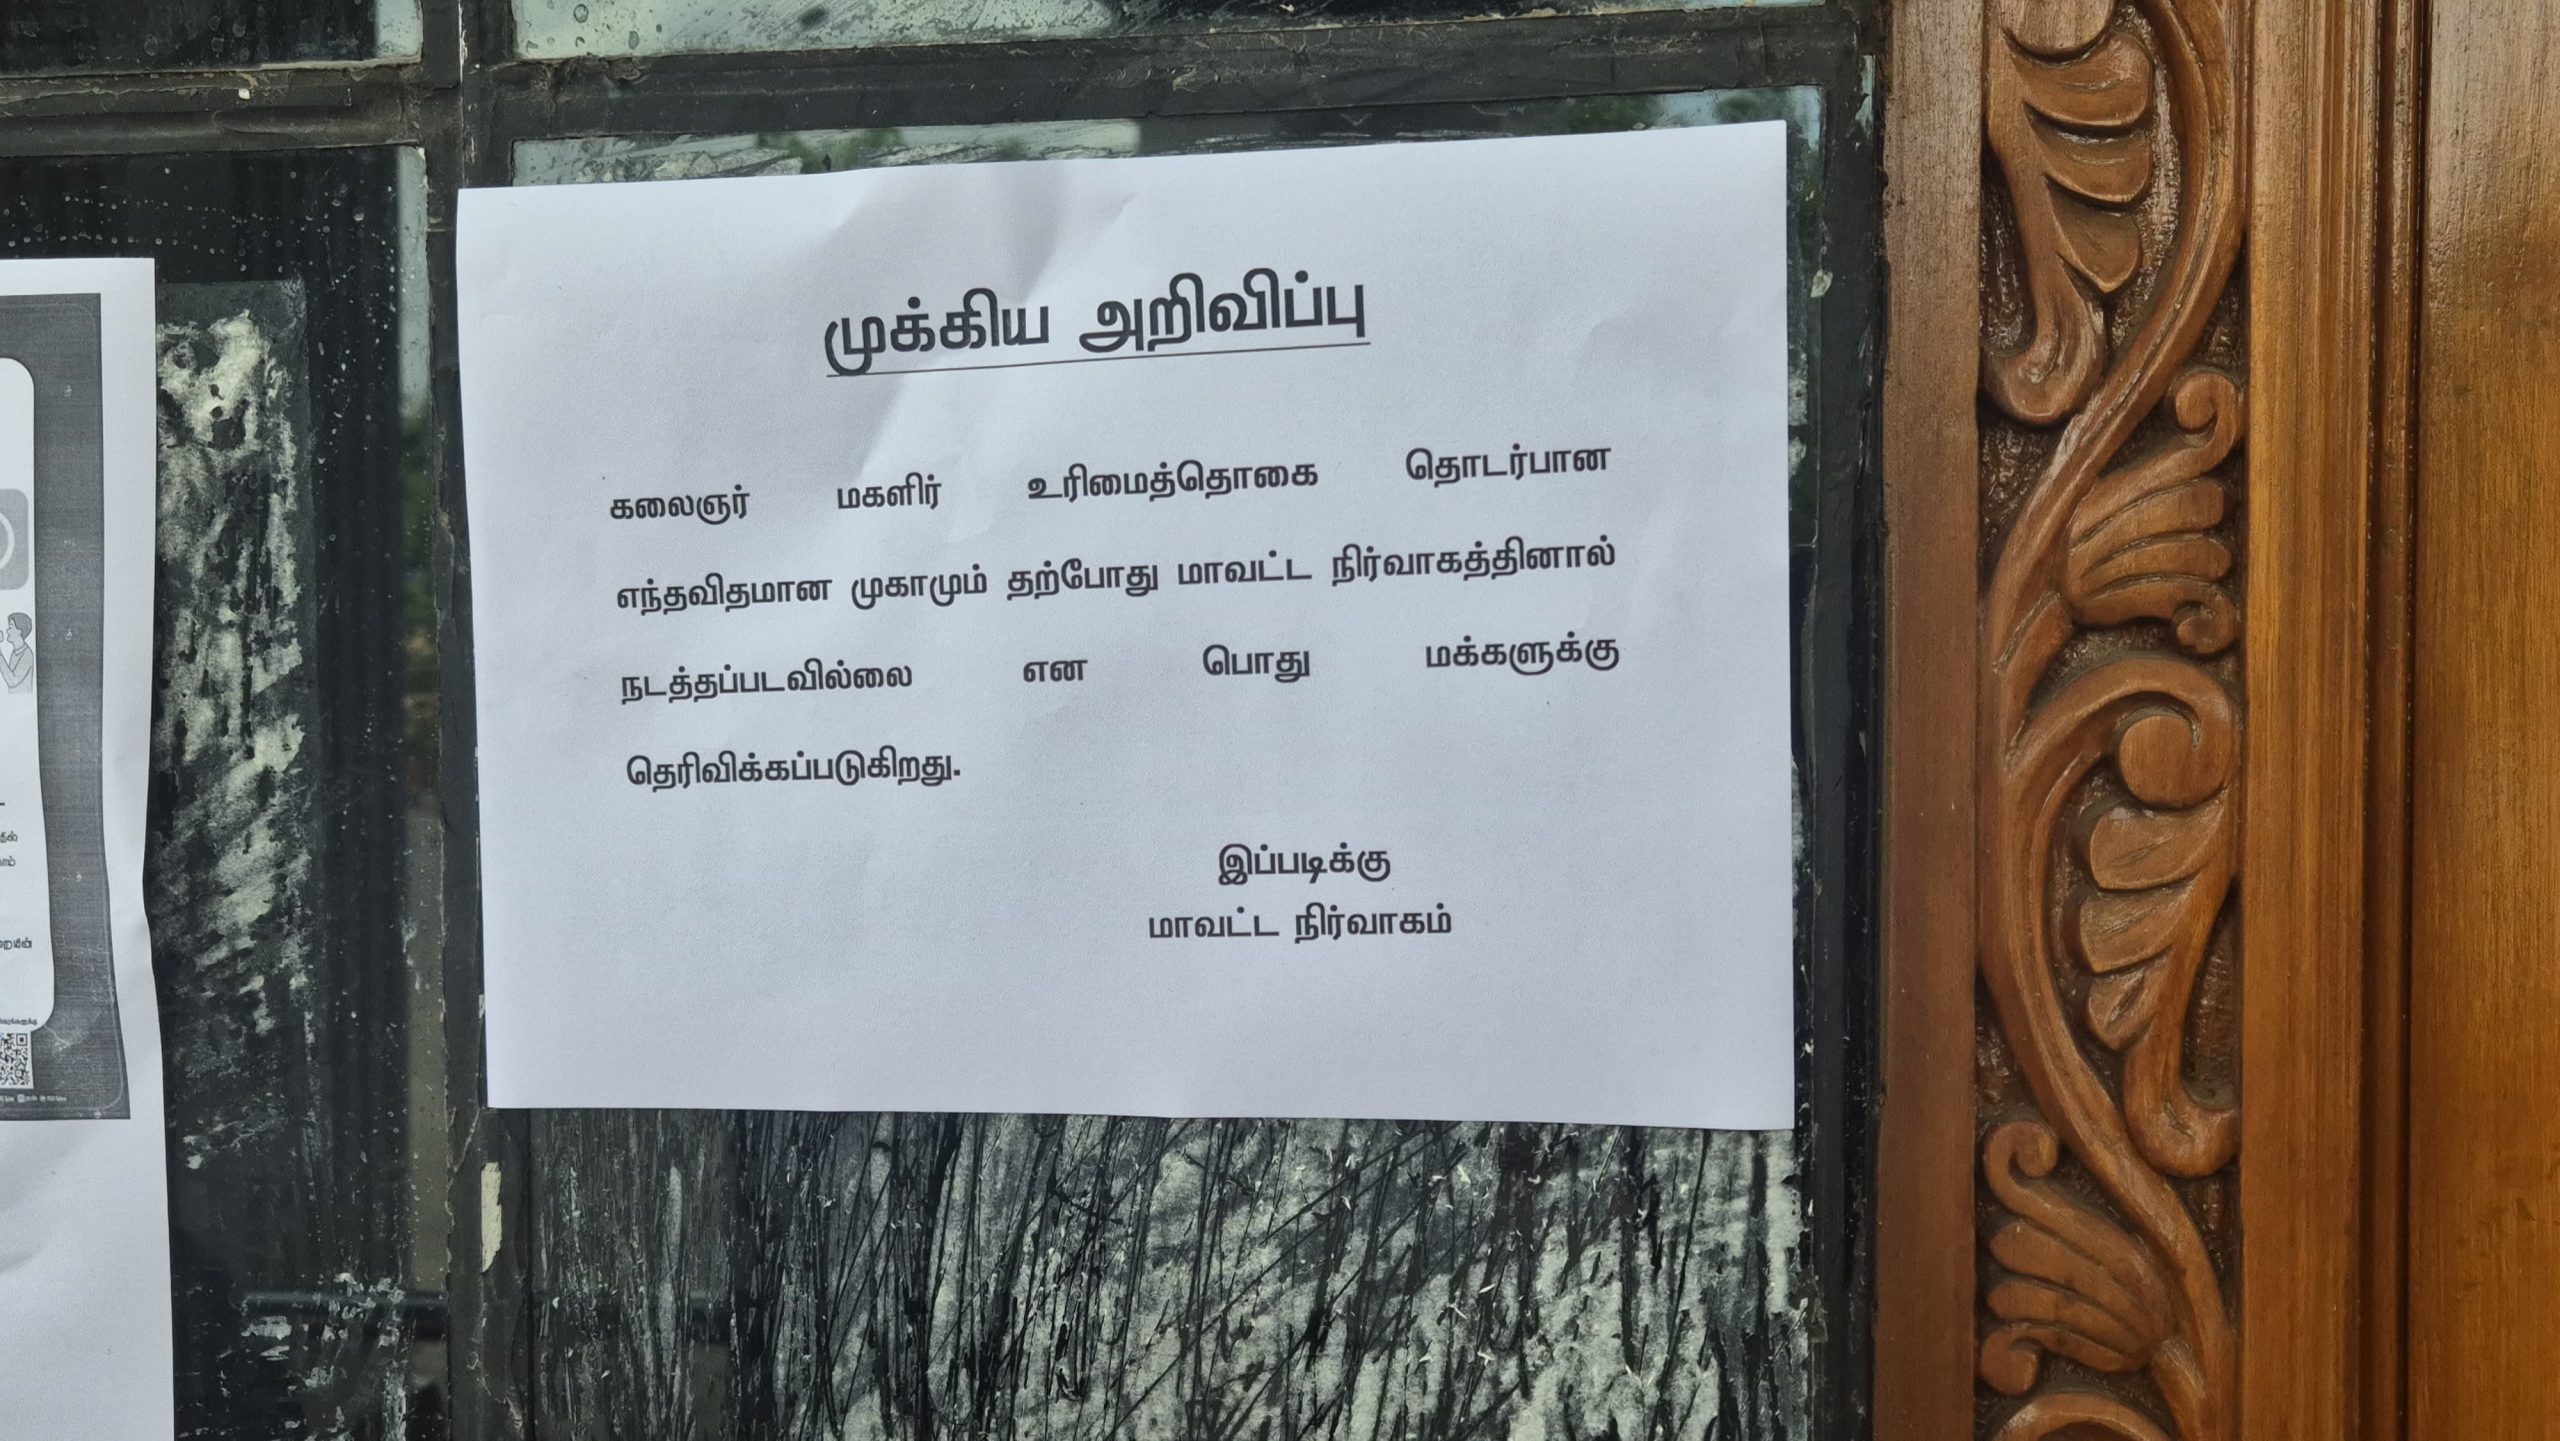 முக்கிய அறிவிப்பு
கலைஞர் மகளிர் உரிமைத்தொகை தொடர்பான
எந்தவிதமான முகாமும் தற்போது மாவட்ட நிர்வாகத்தினால்
நடத்தப்படவில்லை என பொது மக்களுக்கு
தெரிவிக்கப்படுகிறது.
இப்படிக்கு
மாவட்ட நிர்வாகம்